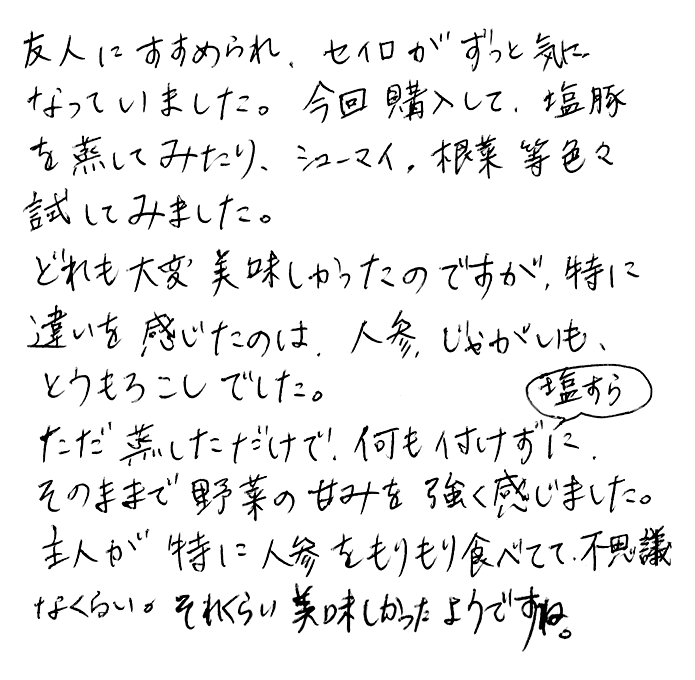 友人にすすめられ、セイロがずっと気に
なっていました。今回購入して、塩豚
を蒸してみたり、シューマイ、根菜等色々
試してみました。
どれも大変美味しかったのですが、特に
違いを感じたのは、人参、じゃがいも、
とうもろこしでした。
塩すら
ただ蒸しただけで、何も付けずに、
そのままで野菜の甘みを強く感じました。
主人が特に人参をもりもり食べてて、不思議
なくらい。それくらい美味しかったようですね。